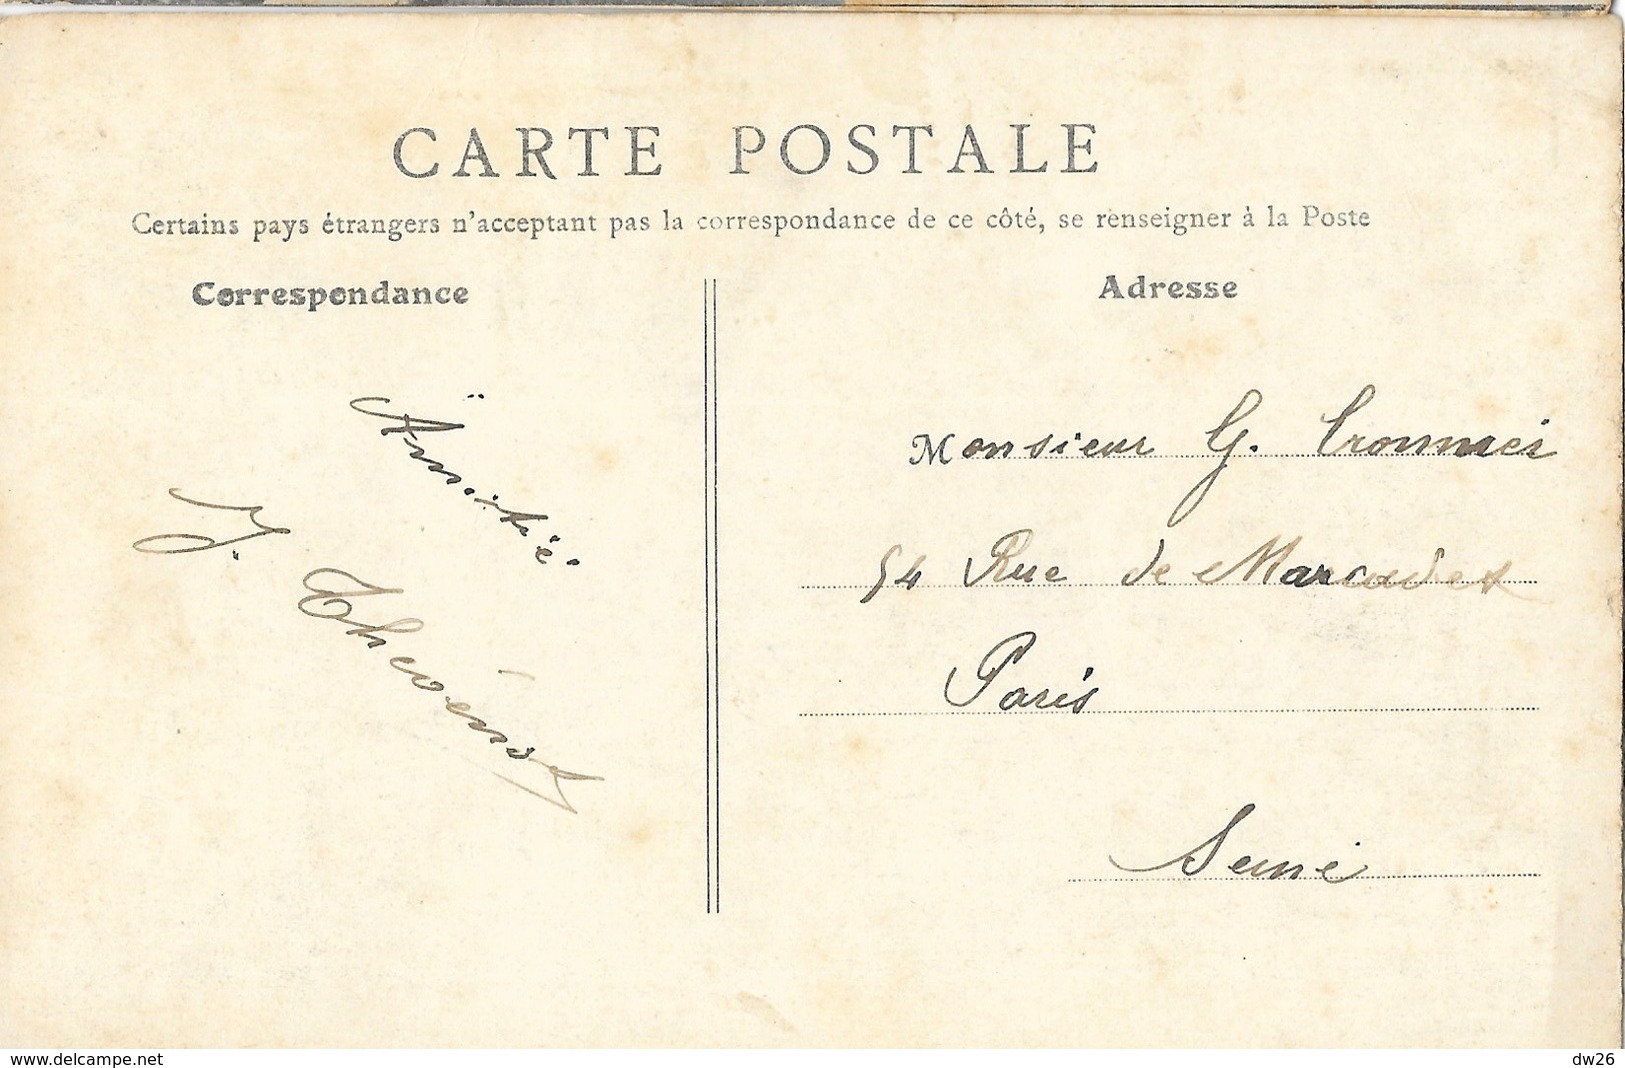 CARTE POSTALE
Certains pays étrangers n'acceptant pas la correspondance de ce côté, se renseigner à la Poste
Correspondance
Adresse
Amitié
J. Thévenot
Monsieur G.
54 Rue de Marcadet
Paris
Seine
www.delcampe.net
dw26